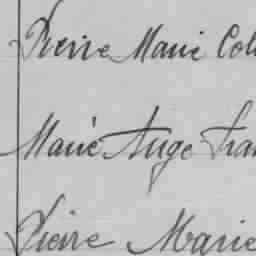 Pierre Marie
Marie Ange
Pierre Marie